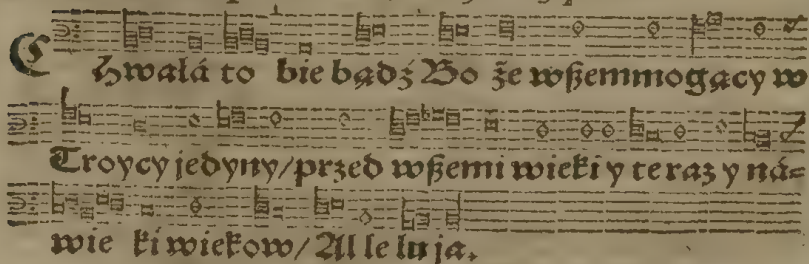 Chwałá to bie bądź Bo że wßemmogący w
Troycy jedyny/przed wßemi wieki y teraz y ná=
wie ki wiekow/Al le lu ja.